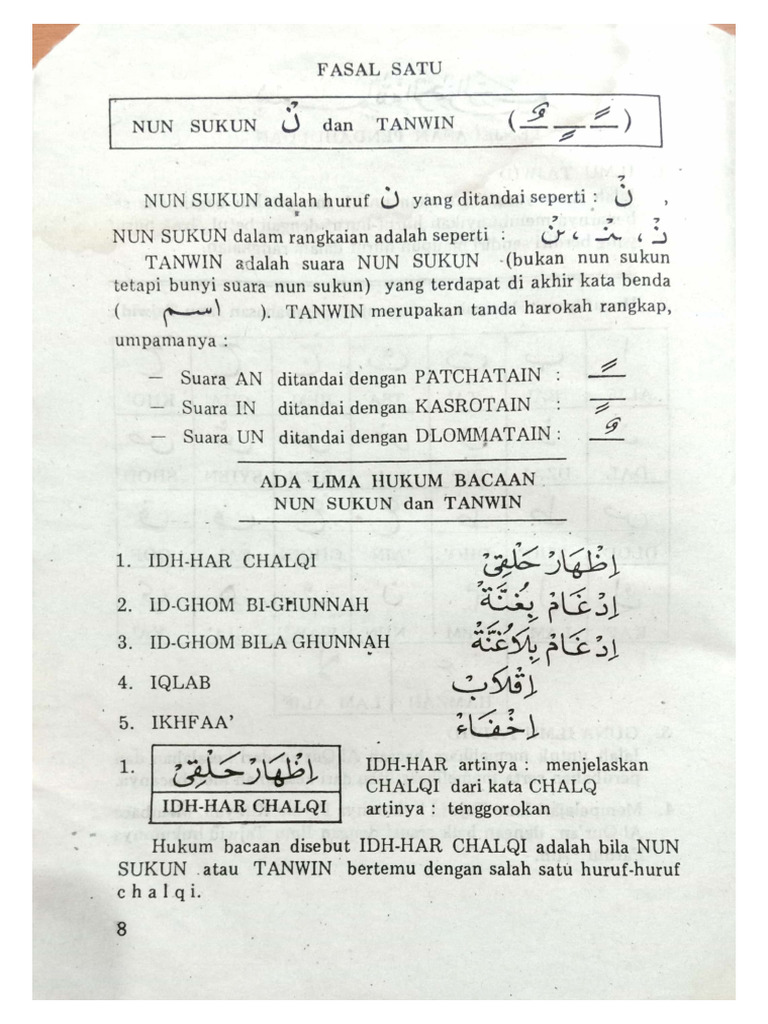 FASAL SATU
NUN SUKUN نْ dan TANWIN ( ـٌ ـٍ ـً )
NUN SUKUN adalah huruf ن yang ditandai seperti : نْ ,
NUN SUKUN dalam rangkaian adalah seperti : نْ ، ـنْـ ، ـنْ
TANWIN adalah suara NUN SUKUN (bukan nun sukun
tetapi bunyi suara nun sukun) yang terdapat di akhir kata benda
( اسم ). TANWIN merupakan tanda harokah rangkap,
umpamanya :
— Suara AN ditandai dengan PATCHATAIN : ـً
— Suara IN ditandai dengan KASROTAIN : ـٍ
— Suara UN ditandai dengan DLOMMATAIN : ـٌ
ADA LIMA HUKUM BACAAN
NUN SUKUN dan TANWIN
1. IDH-HAR CHALQI اِظْهَارْ حَلْقِىْ
2. ID-GHOM BI-GHUNNAH اِدْغَامْ بِغُنَّةْ
3. ID-GHOM BILA GHUNNAH اِدْغَامْ بِلَاغُنَّةْ
4. IQLAB اِقْلَابْ
5. IKHFAA' اِخْفَاءْ
1. اِظْهَارْ حَلْقِىْ
IDH-HAR CHALQI
IDH-HAR artinya : menjelaskan
CHALQI dari kata CHALQ
artinya : tenggorokan
Hukum bacaan disebut IDH-HAR CHALQI adalah bila NUN
SUKUN atau TANWIN bertemu dengan salah satu huruf-huruf
chalqi.
8